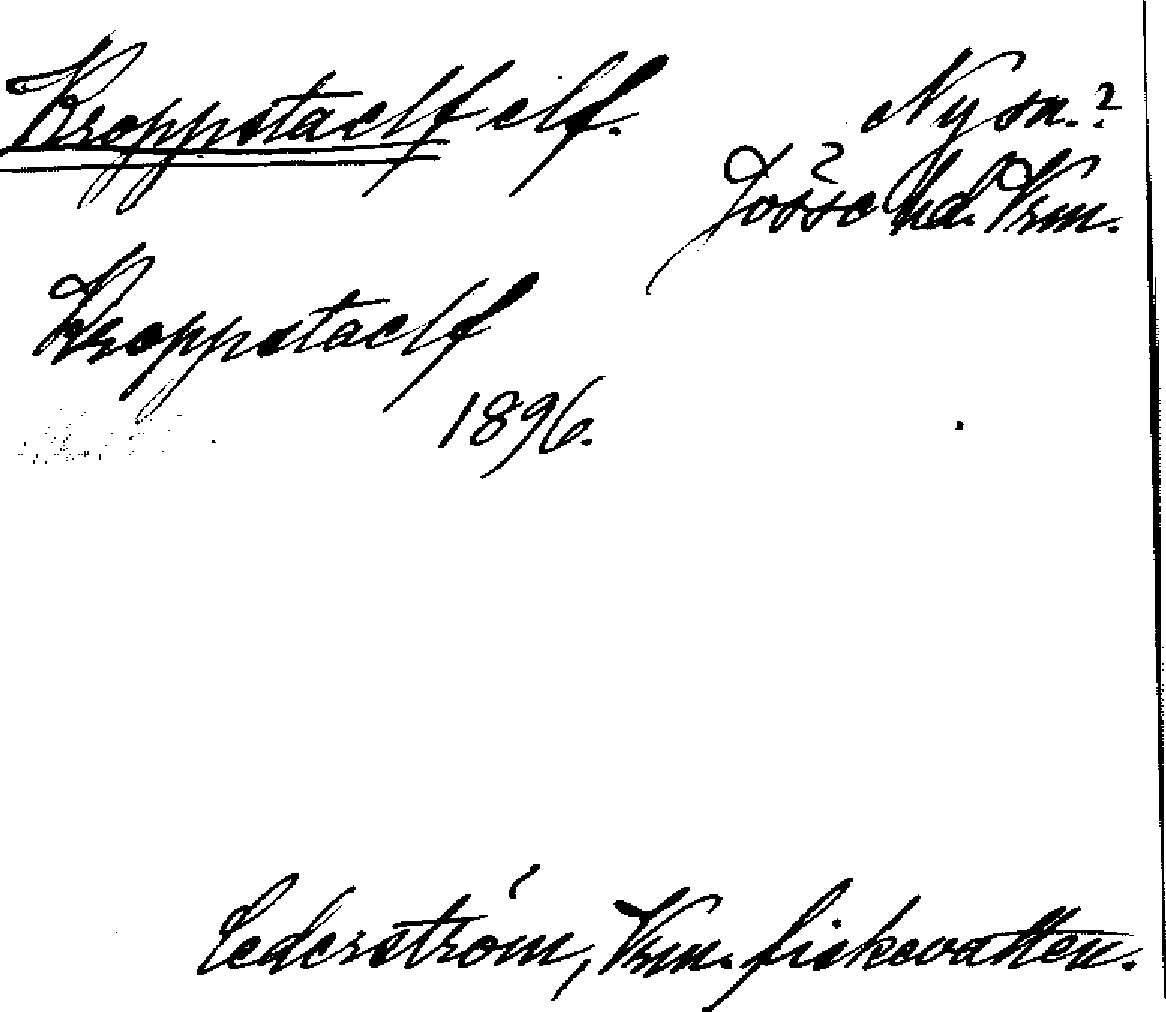 Kroppstaelf elf. Ny sn.?
Jösse hd. Vrm.
Kroppstaelf
1896.
Cederström, Vrm. fiskevatten.